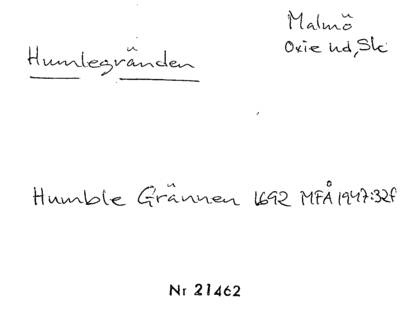 Malmö
Oxie hd, Sk
Humlegränden
Humble Grännen 1692 MFÅ 1947:32f
Nr 21462